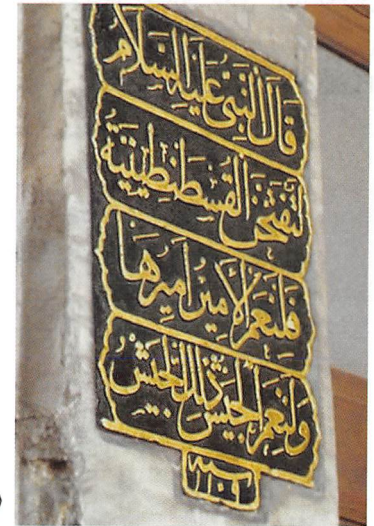 قَالَ النَّبِيُّ عَلَيْهِ السَّلَامُ
لَتُفْتَحَنَّ الْقُسْطَنْطِينِيَّةُ
فَلَنِعْمَ الْأَمِيرُ أَمِيرُهَا
وَلَنِعْمَ الْجَيْشُ ذَلِكَ الْجَيْشُ
سنه